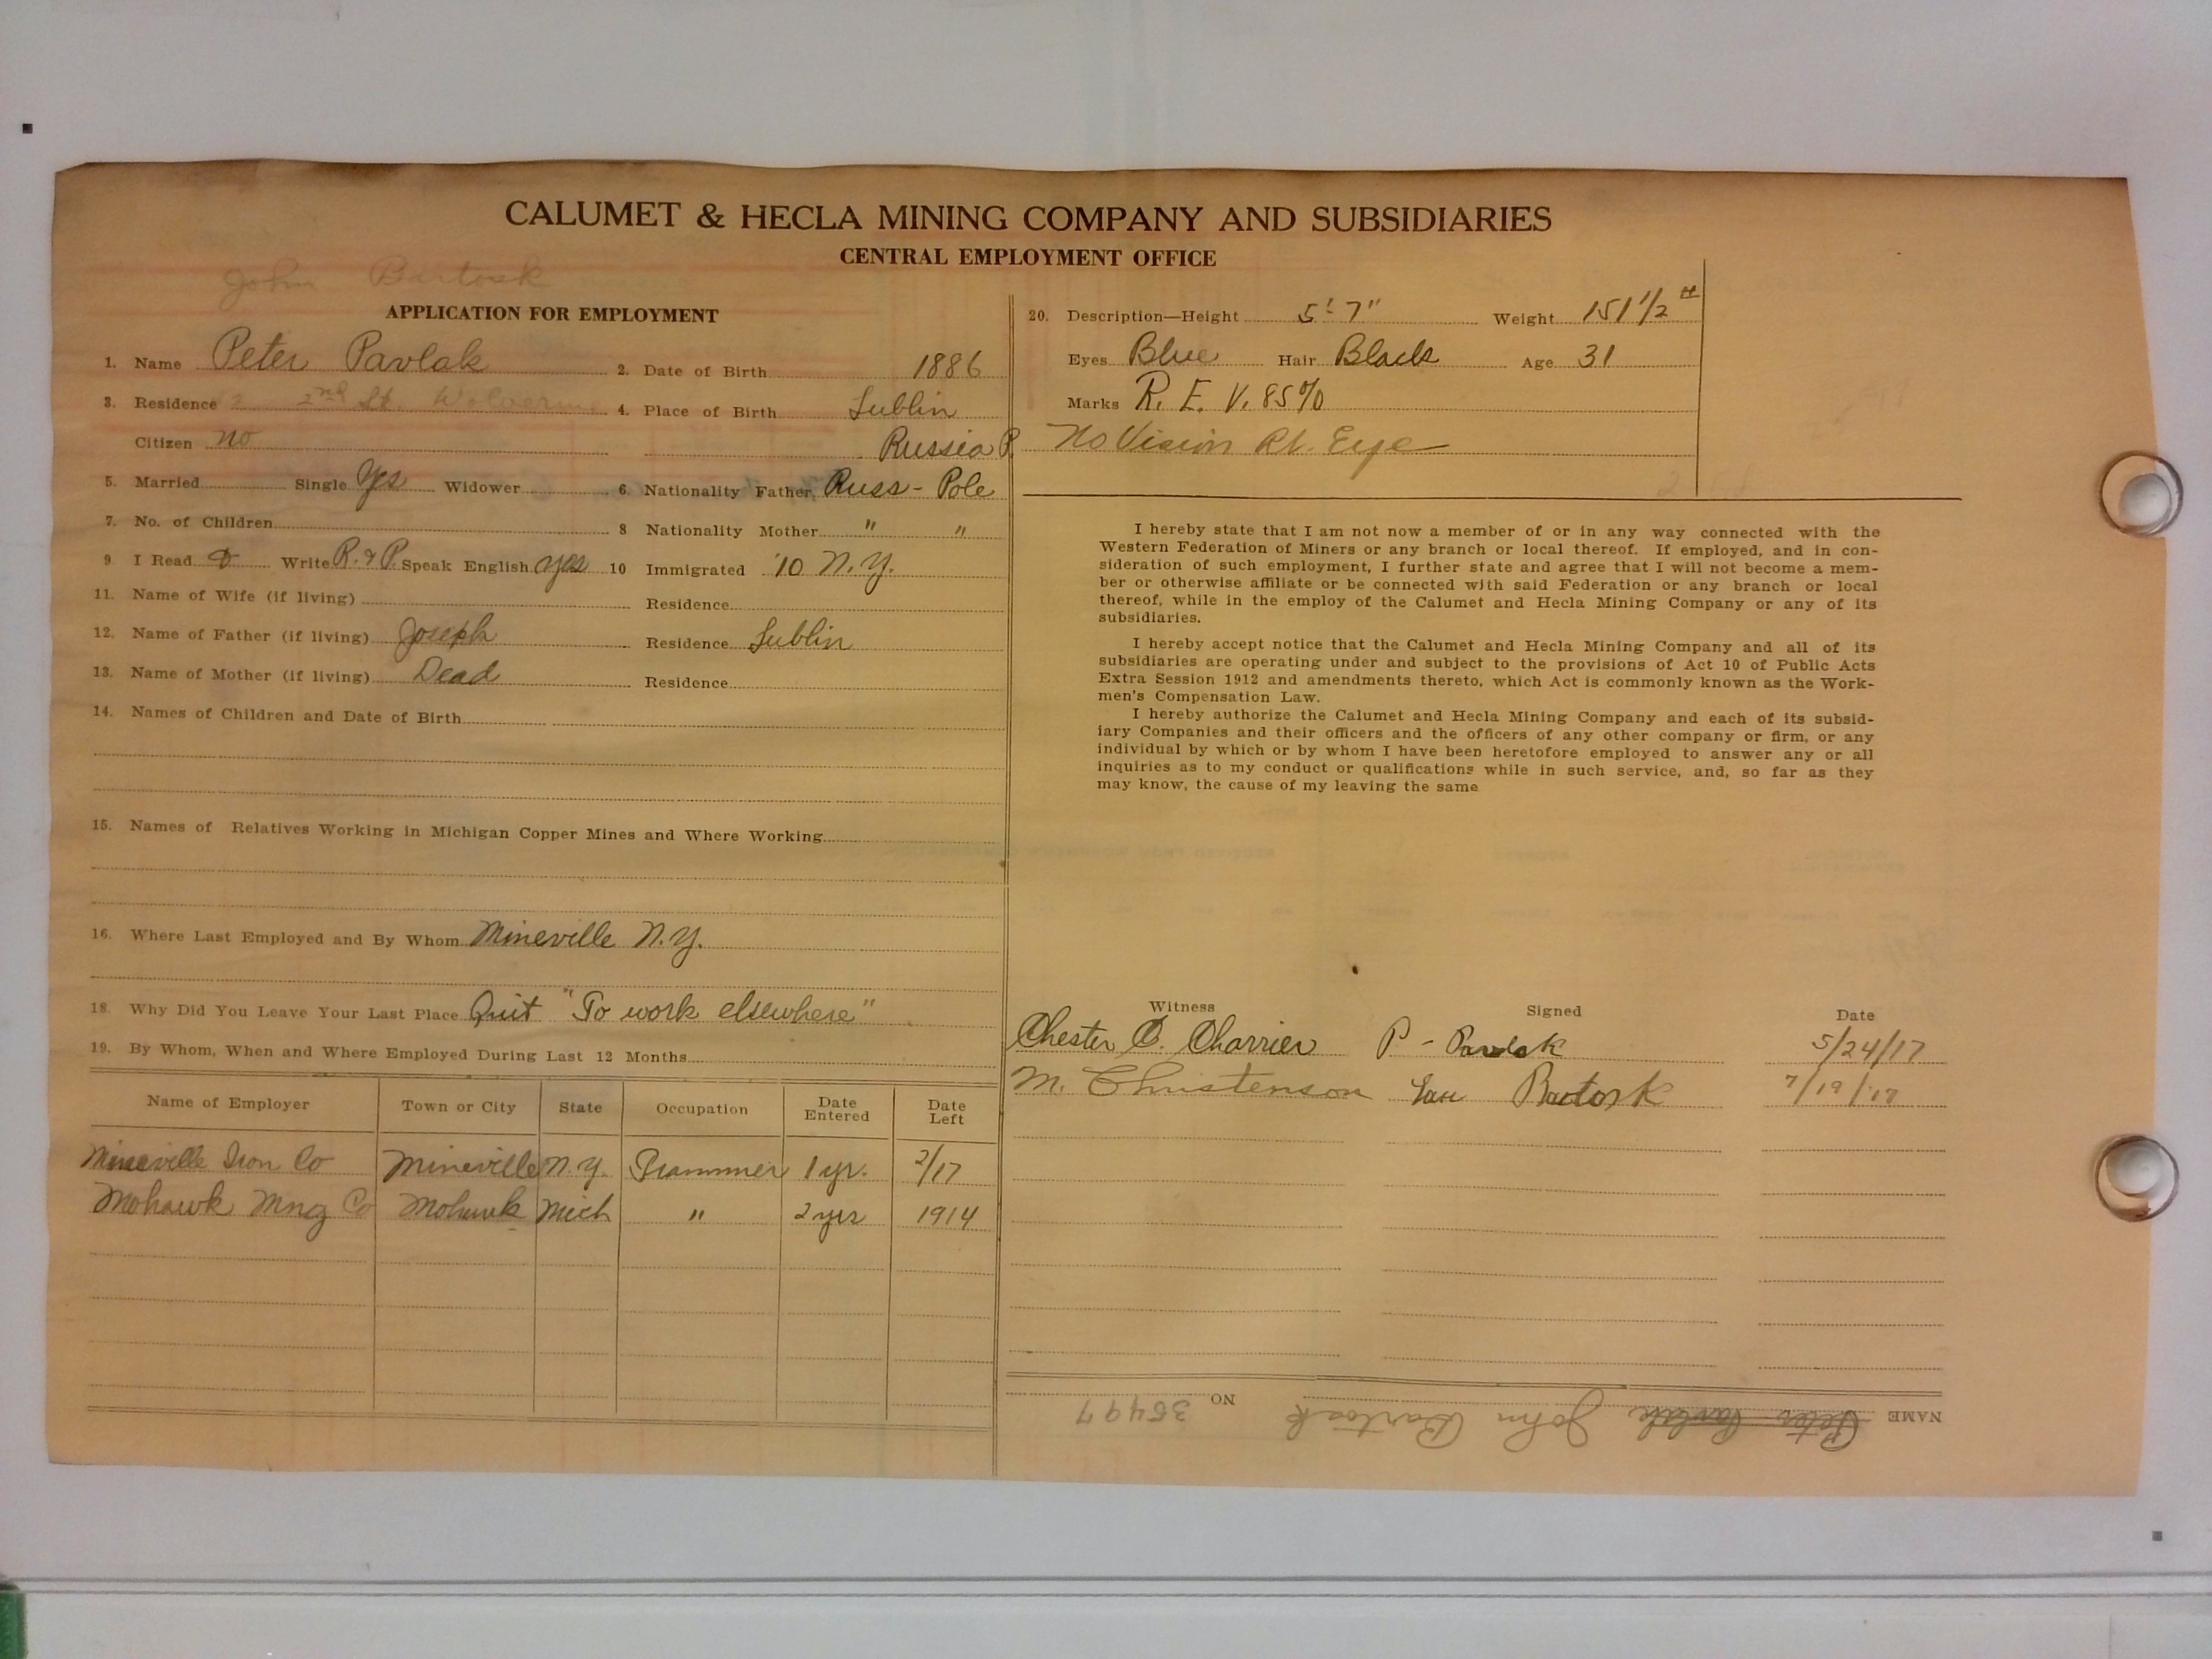 CALUMET & HECLA MINING COMPANY AND SUBSIDIARIES
CENTRAL EMPLOYMENT OFFICE
John Bartosk
APPLICATION FOR EMPLOYMENT
1. Name Peter Pavlak 2. Date of Birth 1886
3. Residence 2nd St. Wolverine 4. Place of Birth Lublin
Citizen no Russia P.
5. Married Single Yes Widower 6. Nationality Father Russ - Pole
7. No. of Children 8 Nationality Mother " "
9 I Read & Write R. & P. Speak English yes 10 Immigrated '10 N.Y.
11. Name of Wife (if living) Residence
12. Name of Father (if living) Joseph Residence Lublin
13. Name of Mother (if living) Dead Residence
14. Names of Children and Date of Birth
15. Names of Relatives Working in Michigan Copper Mines and Where Working
16. Where Last Employed and By Whom Mineville N.Y.
18. Why Did You Leave Your Last Place Quit "To work elsewhere"
19. By Whom, When and Where Employed During Last 12 Months
Name of Employer Town or City State Occupation Date Entered Date Left
Mineville Iron Co Mineville N.Y. Trammer 1 yr. 2/17
Mohawk Mng Co Mohawk Mich " 2 yrs 1914
20. Description—Height 5' 7" Weight 151 1/2 #
Eyes Blue Hair Black Age 31
Marks R. E. V. 85%
No Vision Rt. Eye
I hereby state that I am not now a member of or in any way connected with the
Western Federation of Miners or any branch or local thereof. If employed, and in con-
sideration of such employment, I further state and agree that I will not become a mem-
ber or otherwise affiliate or be connected with said Federation or any branch or local
thereof, while in the employ of the Calumet and Hecla Mining Company or any of its
subsidiaries.
I hereby accept notice that the Calumet and Hecla Mining Company and all of its
subsidiaries are operating under and subject to the provisions of Act 10 of Public Acts
Extra Session 1912 and amendments thereto, which Act is commonly known as the Work-
men's Compensation Law.
I hereby authorize the Calumet and Hecla Mining Company and each of its subsid-
iary Companies and their officers and the officers of any other company or firm, or any
individual by which or by whom I have been heretofore employed to answer any or all
inquiries as to my conduct or qualifications while in such service, and, so far as they
may know, the cause of my leaving the same
Witness Signed Date
Chester C. Charrier P - Pavlak 5/24/17
M. Christenson Bartosk 7/19/17
NAME Peter Pavlak John Bartosk NO 35497